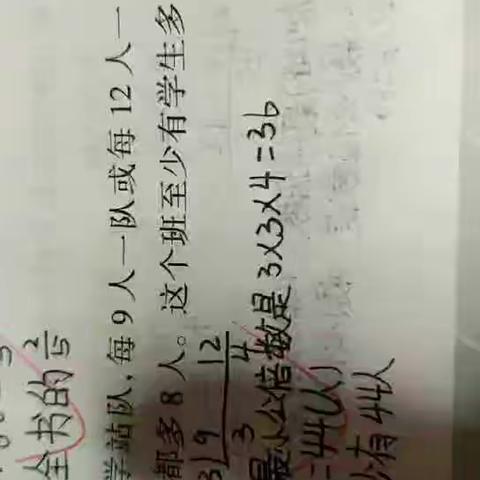 全书的 2/5
学站队,每9人一队或每12人一
都多8人。这个班至少有学生多
3 9 12
3 4
最小公倍数是3×3×4=36
=44(人)
少有44人